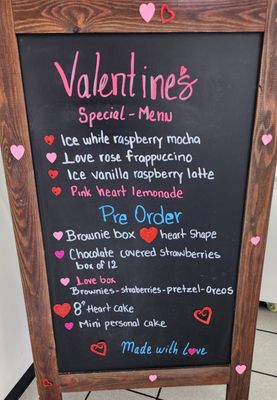 Valentine's
Special - Menu
Ice white raspberry mocha
Love rose frappuccino
Ice vanilla raspberry latte
Pink heart lemonade
Pre Order
Brownie box heart Shape
Chocolate covered strawberries
box of 12
Love box
Brownies-straberries-pretzel-Oreos
8" Heart cake
Mini personal cake
Made with love